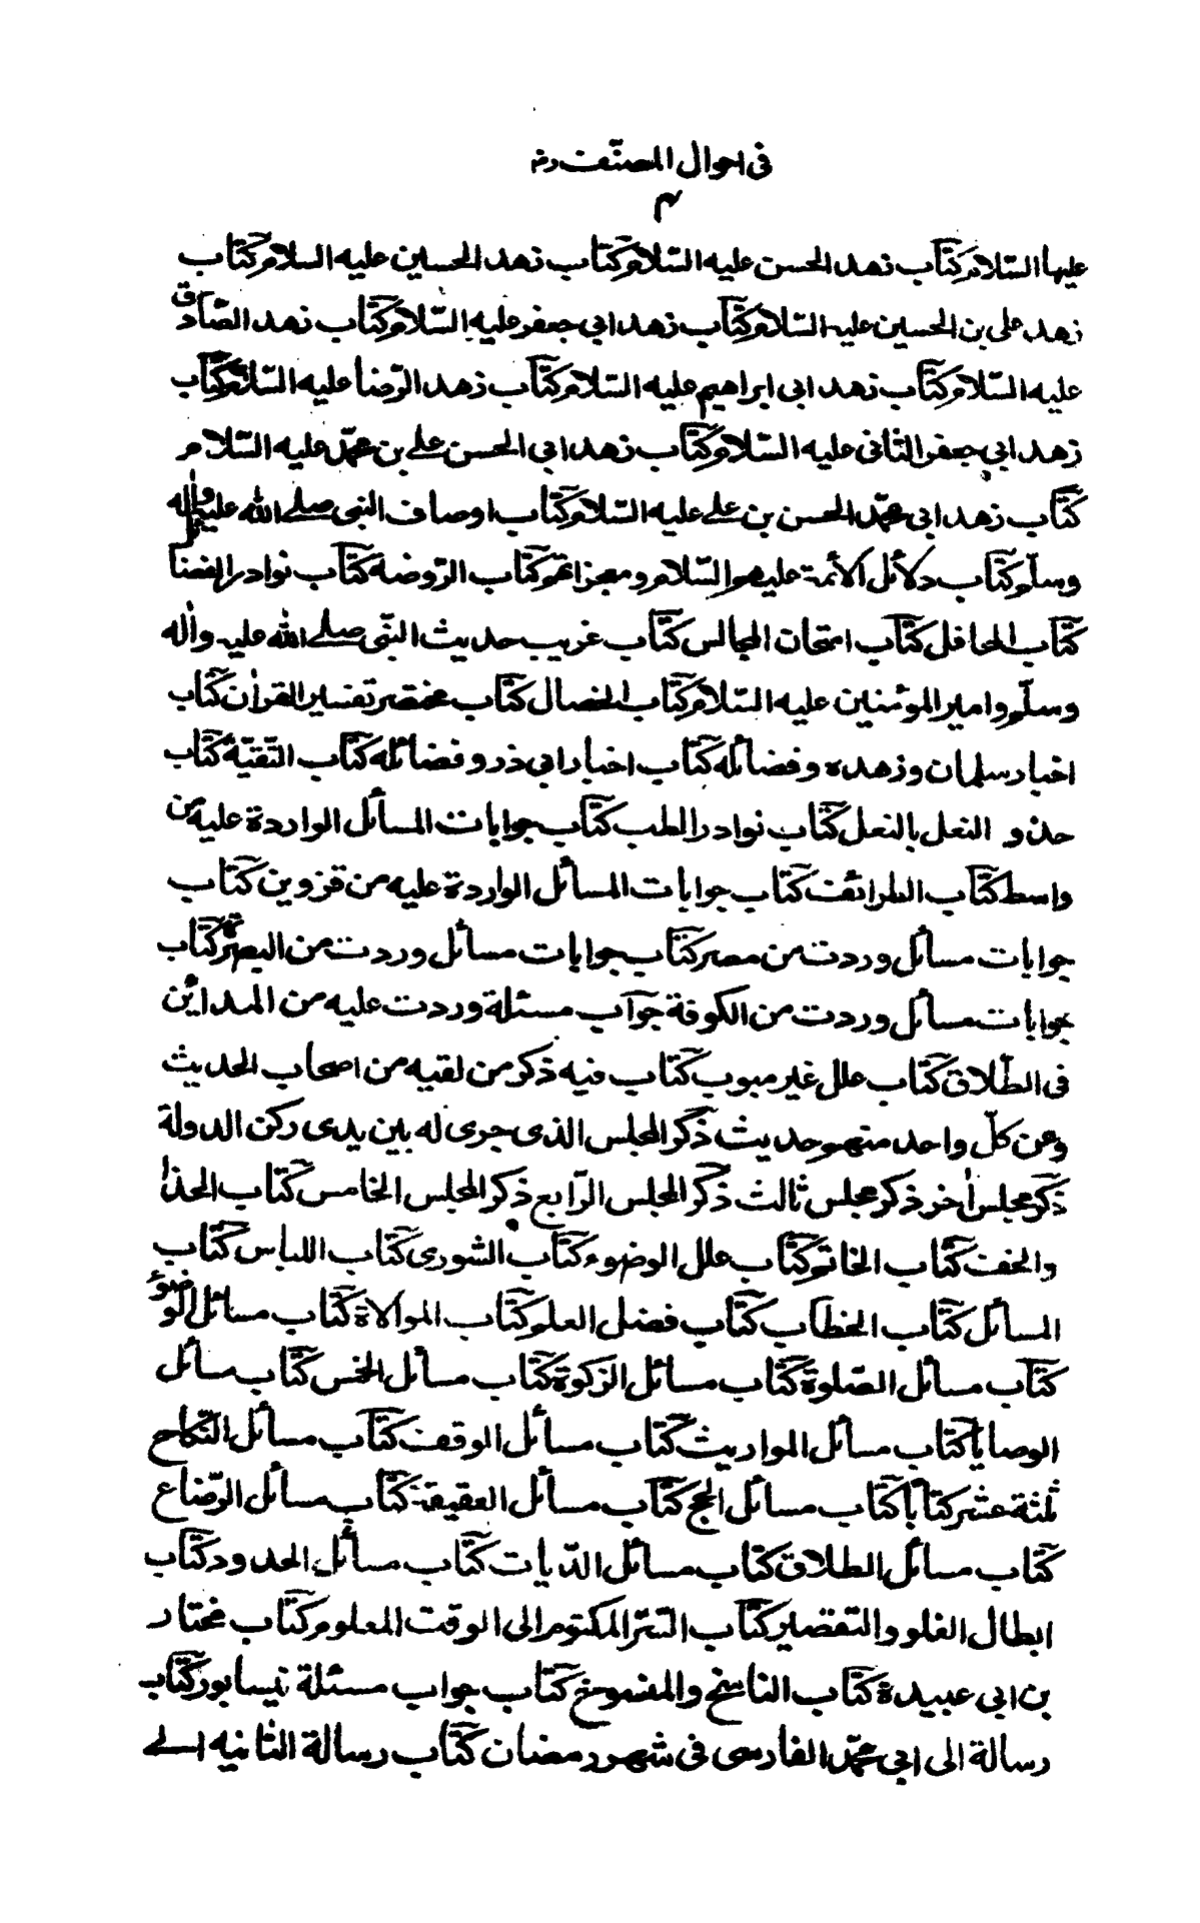 فى احوال المصنّف ره
٣
عليها السّلام كتاب زهد الحسن عليه السّلام كتاب زهد الحسين عليه السلام كتاب
زهد على بن الحسين عليه السّلام كتاب زهد ابي جعفر عليه السّلام كتاب زهد الصّادق
عليه السّلام كتاب زهد ابى ابراهيم عليه السّلام كتاب زهد الرّضا عليه السّلام كتاب
زهد ابي جعفر الثانى عليه السّلام كتاب زهد ابي الحسن على بن محمّد عليه السّلام
كتاب زهد ابي محمّد الحسن بن على عليه السّلام كتاب اوصاف النبى صلى الله عليه واله
وسلّم كتاب دلائل الأئمة عليهم السّلام ومعجزاتهم كتاب الرّوضة كتاب نوادر الفضا
كتاب المحافل كتاب امتحان المجالس كتاب غريب حديث النّبى صلى الله عليه واله
وسلّم وامير المؤمنين عليه السّلام كتاب الخصال كتاب مختصر تفسير القران كتاب
اخبار سلمان وزهده وفضائله كتاب اخبار ابى ذر وفضائله كتاب التّقيّة كتاب
حذو النعل بالنعل كتاب نوادر الطب كتاب جوابات المسائل الواردة عليه من
واسط كتاب الطرائف كتاب جوابات المسائل الواردة عليه من قزوين كتاب
جوابات مسائل وردت من مصر كتاب جوابات مسائل وردت من البصرة كتاب
جوابات مسائل وردت من الكوفة جواب مسئلة وردت عليه من المدائن
فى الطّلاق كتاب علل غير مبوب كتاب فيه ذكر من لقيه من اصحاب الحديث
وعن كلّ واحد منهم حديث ذكر المجلس الذى جرى له بين يدى ركن الدولة
ذكر مجلس اخر ذكر مجلس ثالث ذكر المجلس الرّابع ذكر المجلس الخامس كتاب الحذا
والخف كتاب الخاتم كتاب علل الوضوء كتاب الشورى كتاب اللباس كتاب
المسائل كتاب الخطاب كتاب فضل العلم كتاب الموالاة كتاب مسائل الوضوء
كتاب مسائل الصّلوة كتاب مسائل الزكوة كتاب مسائل الخمس كتاب مسائل
الوصايا كتاب مسائل المواريث كتاب مسائل الوقف كتاب مسائل النّكاح
ثلثة عشر كتاباً كتاب مسائل الحج كتاب مسائل العقيقة كتاب مسائل الرّضاع
كتاب مسائل الطلاق كتاب مسائل الدّيات كتاب مسائل الحدود كتاب
ابطال الغلو والتقصير كتاب السّر المكتوم الى الوقت المعلوم كتاب مختار
بن ابى عبيدة كتاب الناسخ والمنسوخ كتاب جواب مسئلة نيسابور كتاب
رسالة الى ابي محمّد الفارسى فى شهر رمضان كتاب رسالة الثانيه الى